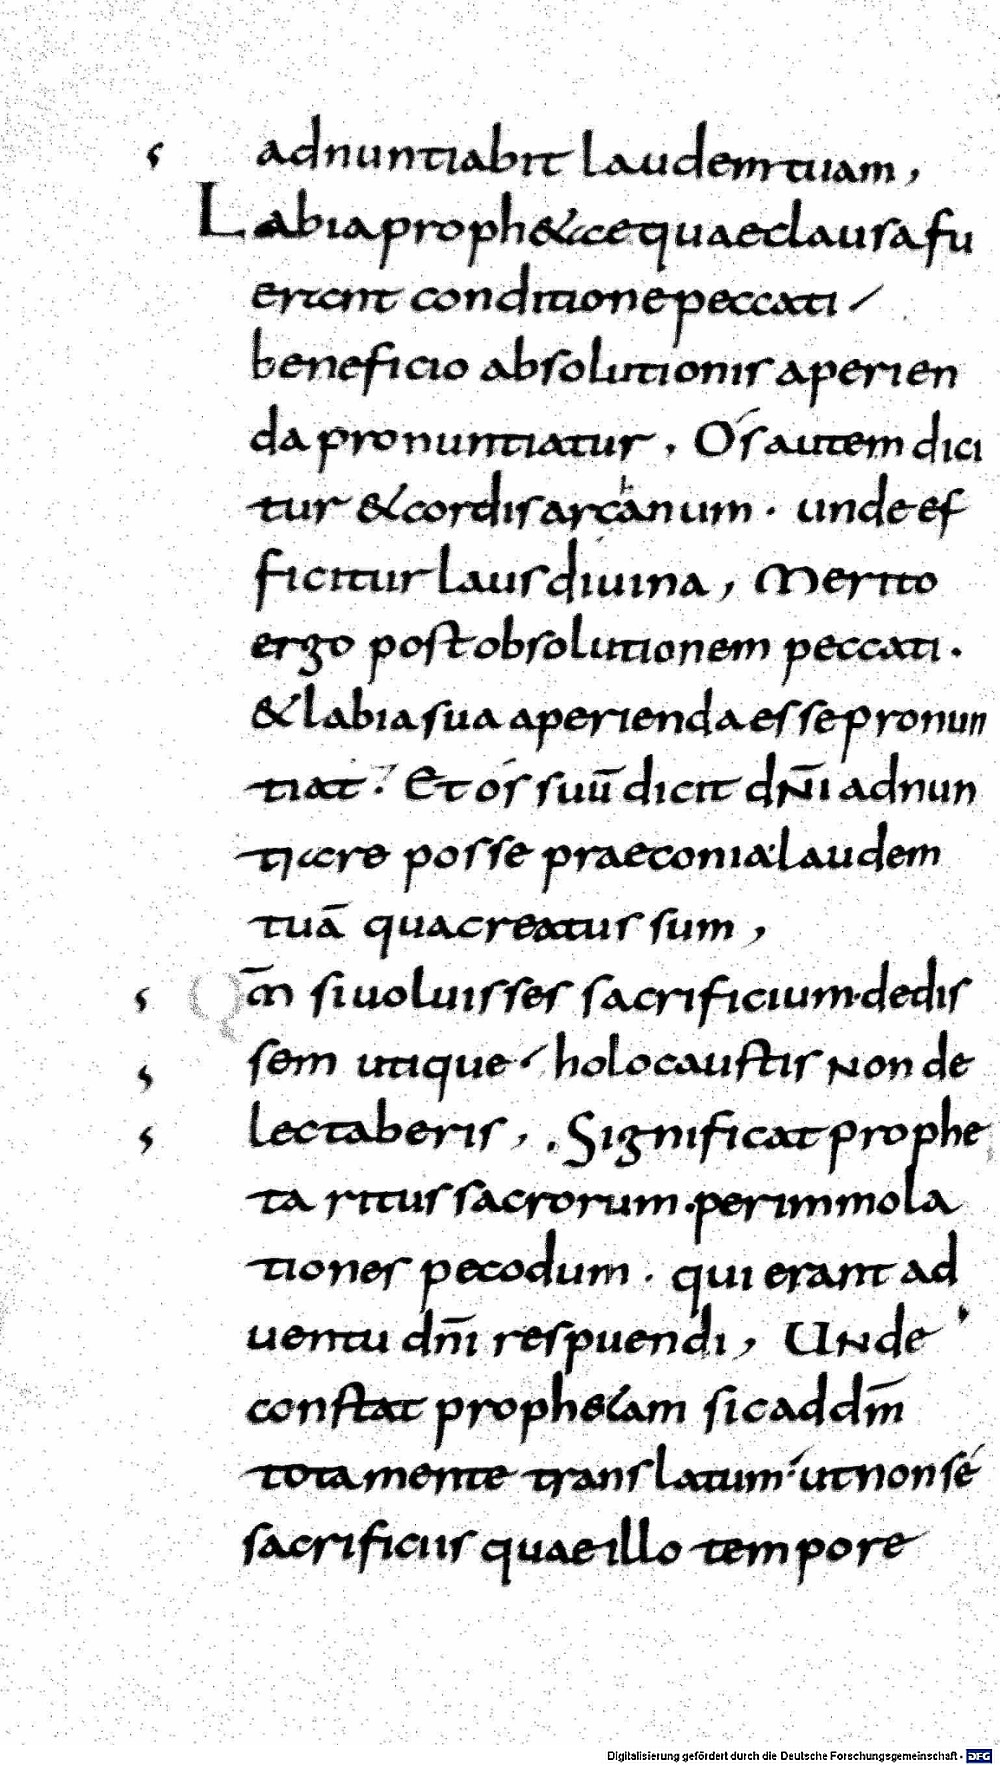 adnuntiabit laudem tuam,
Labia prophetae quae clausa fu
erant conditione peccati /
beneficio absolutionis aperien
da pronuntiatur. Os autem dici
tur & cordis archanum. unde ef
ficitur laus diuina, Merito
ergo post obsolutionem peccati.
& labia sua aperienda esse pronun
tiat. Et os suū dicit dn̄i adnun
tiare posse praeconia laudem
tuā qua creatus sum,
Qm̄ si uoluisses sacrificium. dedis
sem utique / holocaustis non de
lectaberis, . Significat prophe
ta ritus sacrorum. per immola
tiones pecodum. qui erant ad
uentu dn̄i respuendi, Unde
constat prophetam sic ad dm̄
tota mente translatum. ut non se
sacrificiis quae illo tempore
Digitalisierung gefördert durch die Deutsche Forschungsgemeinschaft - DFG